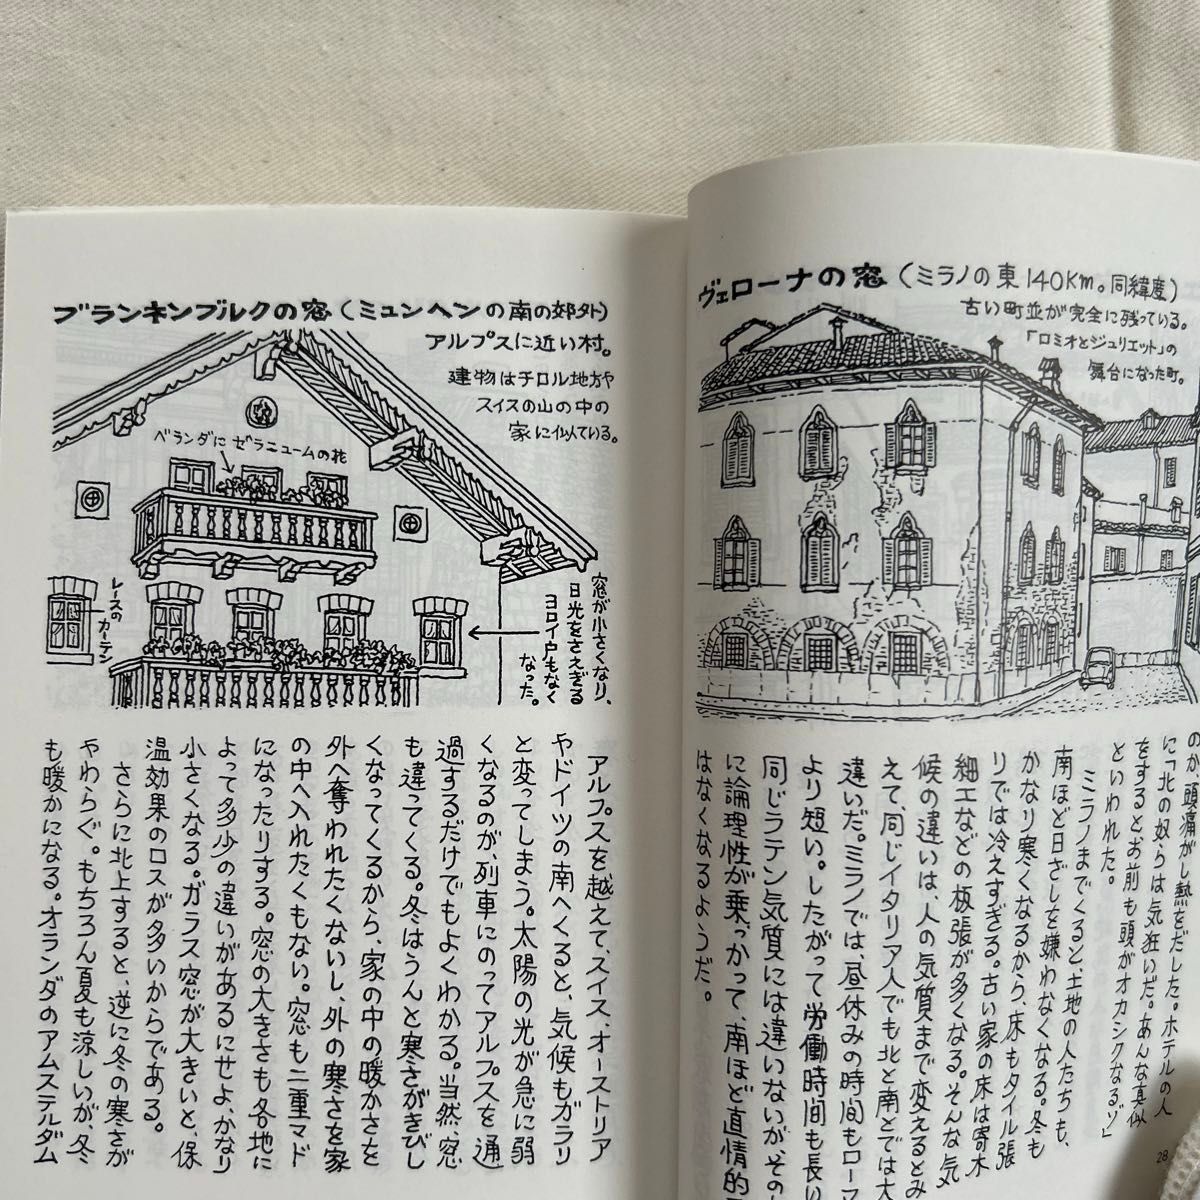 ヴェローナの窓(ミラノの東140Km。同緯度)
古い町並が完全に残っている。
「ロミオとジュリエット」の
舞台になった町。
のか頭痛がし熱をだした。ホテルの人
に「北の奴らは気狂いだ。あんな真似
をするとお前も頭がオカシクなるゾ」
といわれた。
ミラノまでくると、土地の人たちも、
南ほど日ざしを嫌わなくなる。冬も
かなり寒くなるから、床もタイル張
りでは冷えすぎる。古い家の床は寄木
細工などの板張が多くなる。そんな気
候の違いは、人の気質まで変えるとみ
えて、同じイタリア人でも北と南とでは大
違いだ。ミラノでは、昼休みの時間もロー
より短い。したがって労働時間も長
同じラテン気質には違いないが、その
に論理性が乗っかって、南ほど直情的
はなくなるようだ。
28
ブランキンブルクの窓(ミュンヘンの南の郊外)
アルプスに近い村。
建物はチロル地方や
スイスの山の中の
家に似ている。
ベランダにゼラニュームの花
レースのカーテン
窓が小さくなり、
日光をさえぎる
ヨロイ戸もなく
なった。
アルプスを越えて、スイス、オーストリア
やドイツの南へくると、気候もガラリ
と変ってしまう。太陽の光が急に弱
くなるのが、列車にのってアルプスを通
過するだけでもよくわかる。当然、窓
も違ってくる。冬はうんと寒さがきびし
くなってくるから、家の中の暖かさを
外へ奪われたくないし、外の寒さを家
の中へ入れたくもない。窓も二重マド
になったりする。窓の大きさも各地に
よって多少の違いがあるにせよ、かなり
小さくなる。ガラス窓が大きいと、保
温効果のロスが多いからである。
さらに北上すると、逆に冬の寒さが
やわらぐ。もちろん夏も涼しいが、冬
も暖かになる。オランダのアムステルダム